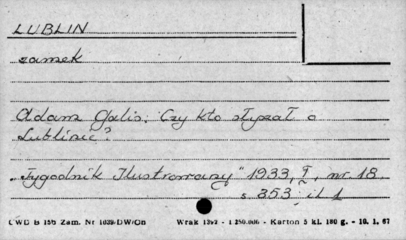 LUBLIN
zamek
Adam Galis: Czy kto słyszał o
Lublinie?
"Tygodnik Ilustrowany" 1933, I, nr. 18
s. 353 il 1
CWD B 150 Zam. Nr 1039/DW/Cn Wrak 1392 - 1 250.000 - Karton 5 kl. 180 g. - 10. 1. 67